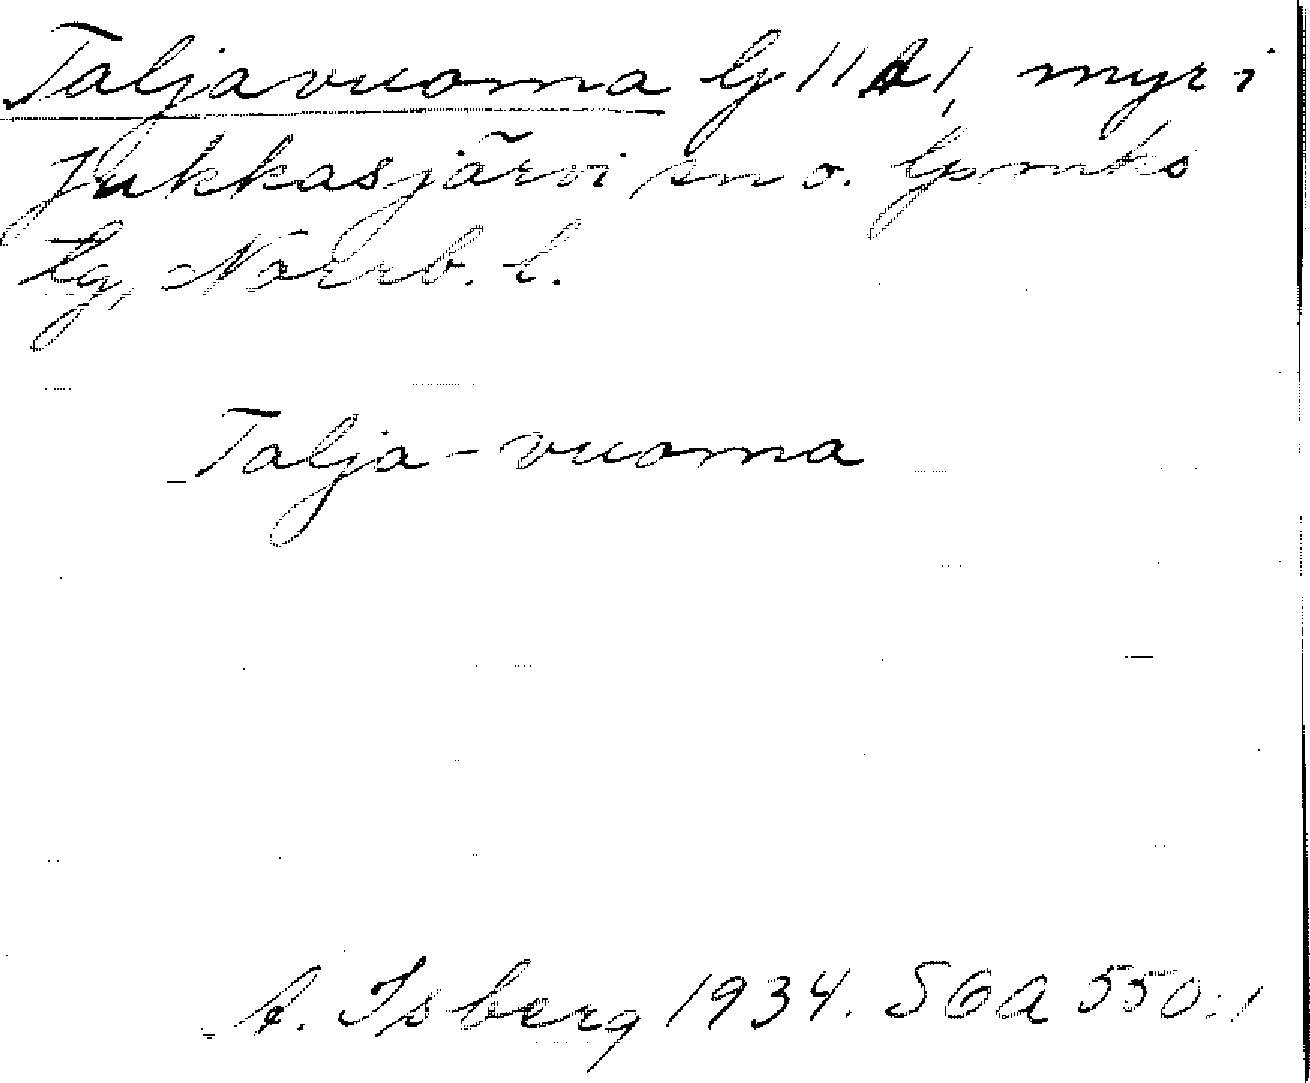 Taljavuoma Gj 11 A1, myr i
Jukkasjärvi sn o. lpmks
lg, Norrb. l.
Talja-vuoma
A. Isberg 1934. SOA 550:1